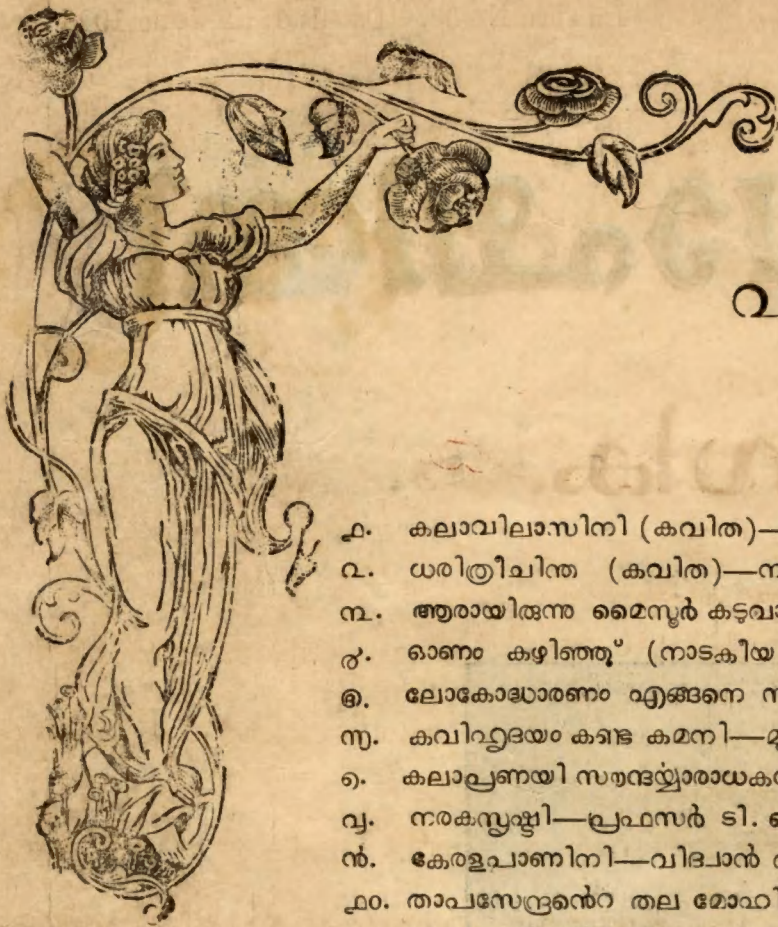 വ
൧. കലാവിലാസിനി (കവിത)—
൨. ധരിത്രീചിന്ത (കവിത)—ന
൩. ആരായിരുന്നു മൈസൂർ കടുവാ
൪. ഓണം കഴിഞ്ഞു് (നാടകീയ
൫. ലോകോദ്ധാരണം എങ്ങനെ ന
൬. കവിഹൃദയം കണ്ട കമനി—മ
൭. കലാപ്രണയി സൗന്ദര്യ്യാരാധക
൮. നരകസൃഷ്ടി—പ്രഫസർ ടി.
൯. കേരളപാണിനി—വിദ്വാൻ
൧൦. താപസേന്ദ്രന്റെ തല മോഹി